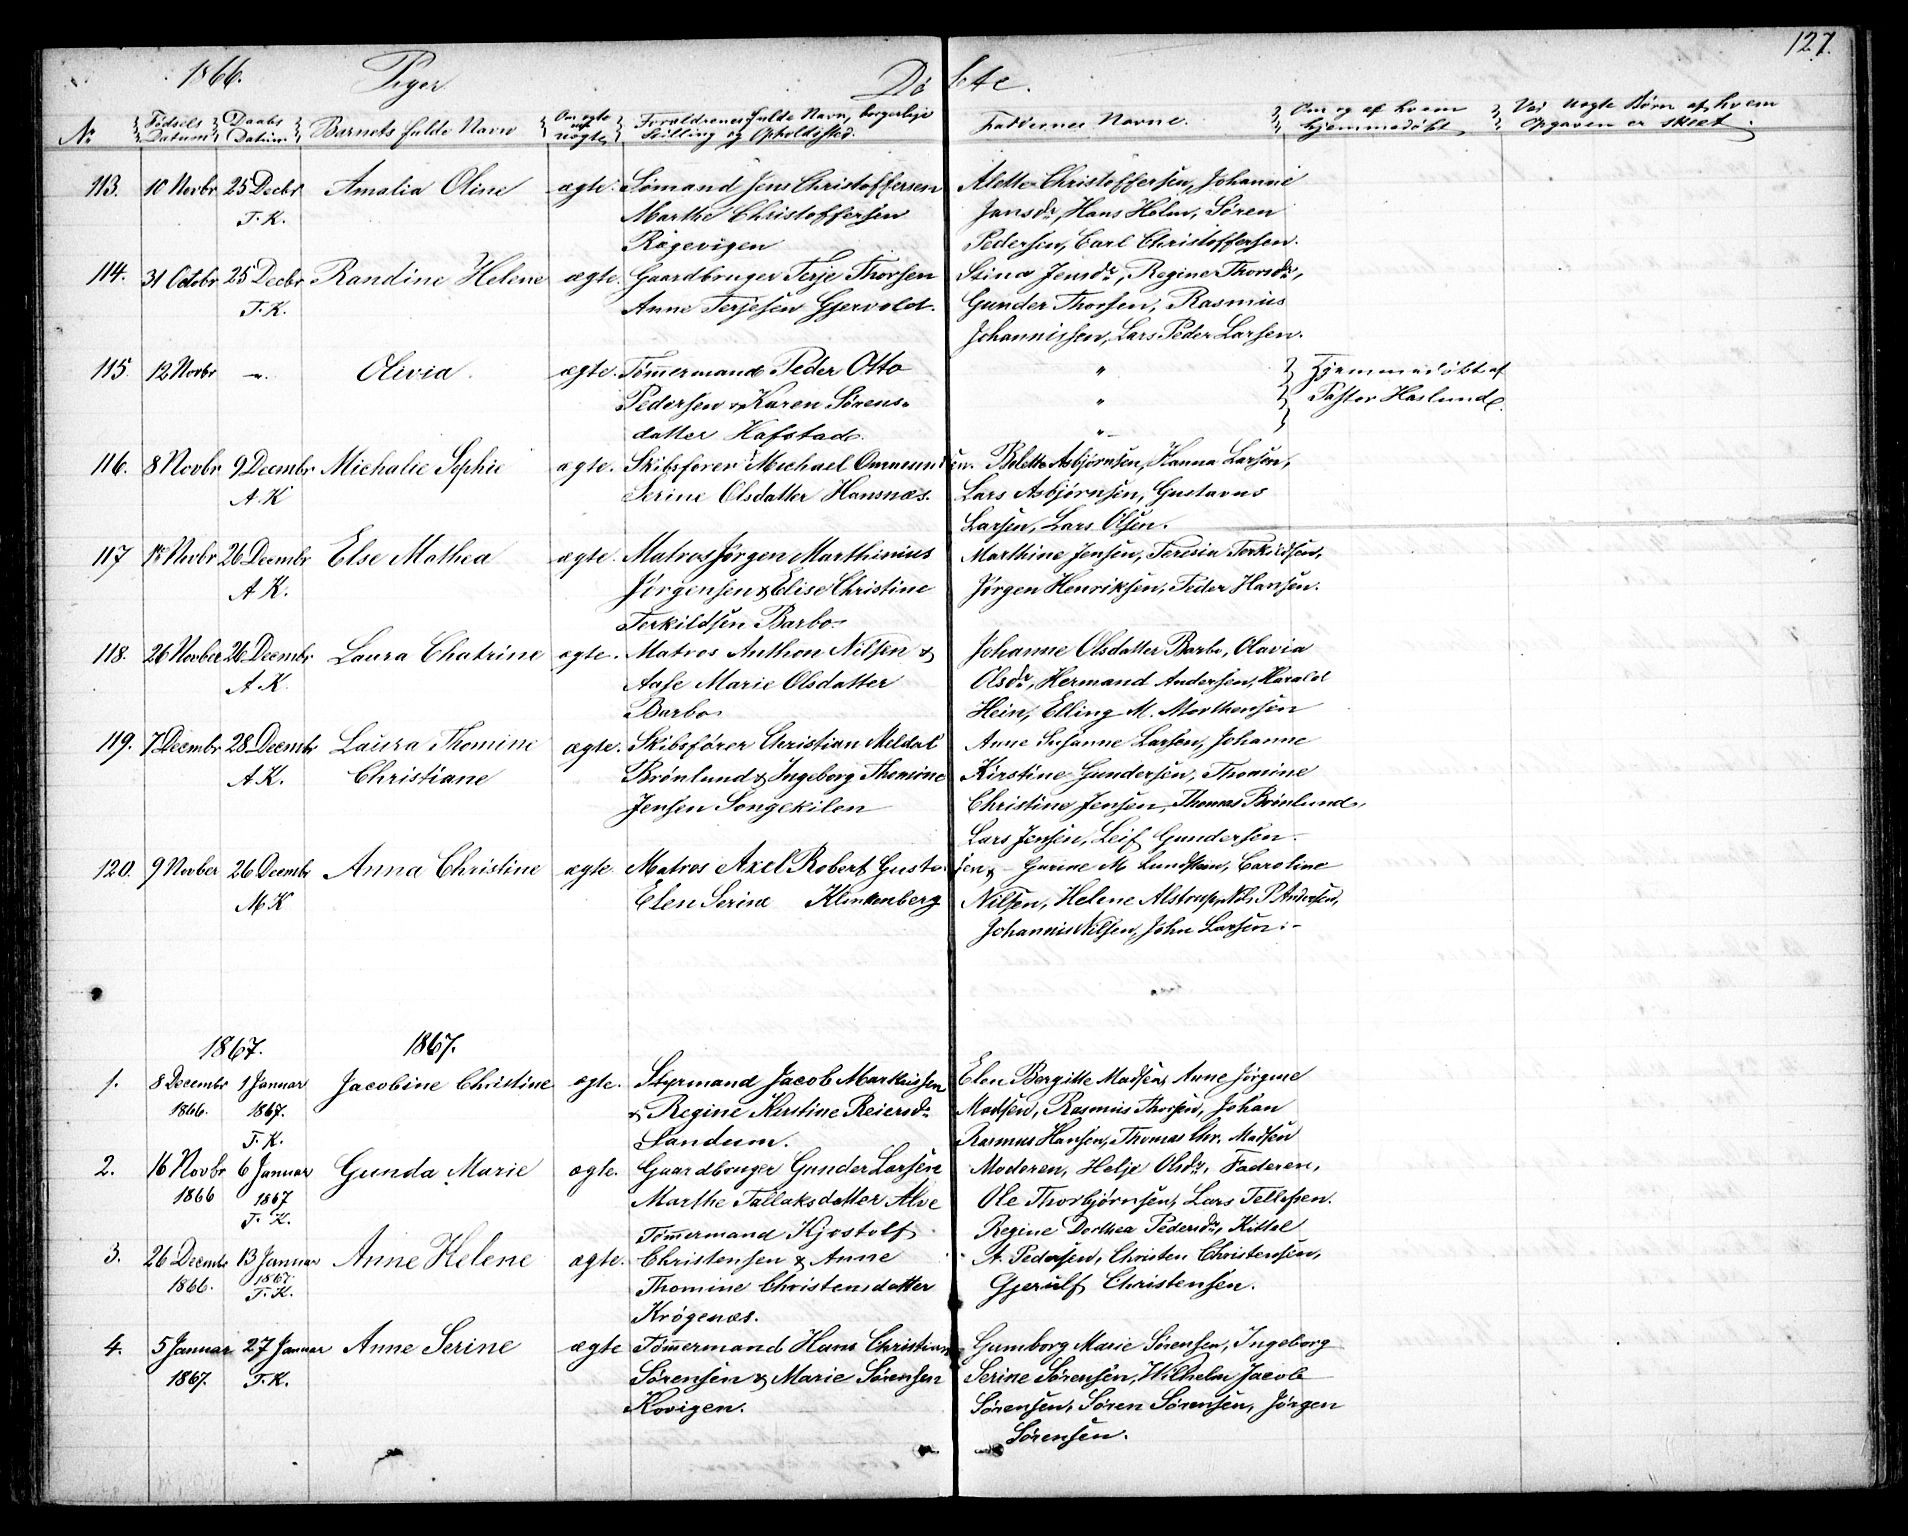 127.
1866. Piger. Döbte.
No Födsels Datum Daabs Datum Barnets fulde Navn Om ægte eller uægte Forældrenes fulde Navn, borgerlige Stilling og Opholdssted. Faddernes Navne. Om og af hvem hjemmedöbt Ved uægte Børn af hvem Opgaven er skeet.
113. 10 Novbr 25 Decbr Amalia Oline ægte. Sømand Jens Christoffersen Alette Christoffersen, Johanne
T.K. Marthe Christoffersen Jansdr, Hans Holm, Søren
Rægevigen Pedersen, Carl Christoffersen.
114. 31 Octobr 25 Decbr Randine Helene ægte. Gaardbruger Terje Thorsen Stina Jensdr, Regine Thorsdr,
T.K. Anne Terjesen Gjervold. Gunder Thorsen, Rasmus
Johannissen, Lars Peder Larsen.
115. 12 Novbr –"– Olivia. ægte. Tømmermand Peder Otto " Hjemmedöbt af
Pedersen & Karen Sørens- " Pastor Haslund.
datter Hafstad. "
116. 8 Novbr 9 Decmbr Michalie Sophie ægte. Skibsfører Michael Ommundsen. Bolette Asbjørnsen, Hanna Larsen,
A.K Serine Olsdatter Hansnæs. Lars Asbjørnsen, Gustavus
Larsen, Lars Olsen.
117 Novbr 26 Decmbr Else Mathea ægte. Matros Jørgen Marthinius Marthine Jensen, Teresia Terkildsen,
A K. Jørgensen & Elise Christine Jørgen Henriksen, Peder Hansen.
Terkildsen Barbo.
118. 26 Novber 26 Decmbr Laura Chatrine ægte. Matros Anthon Nilsen & Johanne Olsdatter Barbo, Olavia
A.K. Aase Marie Olsdatter Olsdr, Hermand Andersen, Harald
Barbo Hein, Elling M. Morthensen
119. 7 Decmbr 28 Decmbr Laura Thomine ægte. Skibsfører Christian Meldal Anne Susanne Larsen, Johanne
A.K. Christiane Brönlund & Ingeborg Thomine Kirstine Gundersen, Thomine
Jensen Songekilen Christine Jensen, Thomas Brönlund,
Lars Jensen, Leif Gundersen.
120. 9 Novber 26 Decmbr Anna Christine ægte. Matros Axel Robert Gusta sen & Gurine M Lundsten, Caroline
M.K Elen Serine Klinkenberg Nilsen, Helene Alstrup, Nils P Andersen,
Johannis Nilsen, John Larsen.
1867. 1867.
1. 8 Decembr 1 Januar Jacobine Christine ægte. Styrmand Jacob Markussen Elen Bergitte Madsen, Anne Jörgine
1866. 1867. & Regine Kirstine Reiersdr Madsen, Rasmus Thorsen, Johan
T.K. Sandum. Rasmus Hansen, Thomas Chr. Madsen
2. 16 Novbr 6 Januar Gunda Marie ægte. Gaardbruger Gunder Larsen Moderen, Helje Olsdr, Faderen,
1866 1867 Marthe Tallaksdatter Alve Ole Thorbjørnsen, Lars Tellefsen.
T.K. Tømmermand Kjostolf Regine Dorthea Pedersdr, Kittel
3. 26 Decmbr 13 Januar Anne Helene ægte. Christensen & Anne A. Pedersen, Christen Christensen,
1866. 1867. Thomine Christensdatter Gjerulf Christensen.
T.K. Krøgenæs.
4. 5 Januar 27 Januar Anne Serine ægte Tømmermand Hans Christian Gumborg Marie Sørensen, Ingeborg
1867. T.K. Sørensen & Marie Sørensen Serine Sørensen, Wilhelm Jacob
Kovigen. Sørensen, Søren Sørensen, Jørgen
Sørensen.